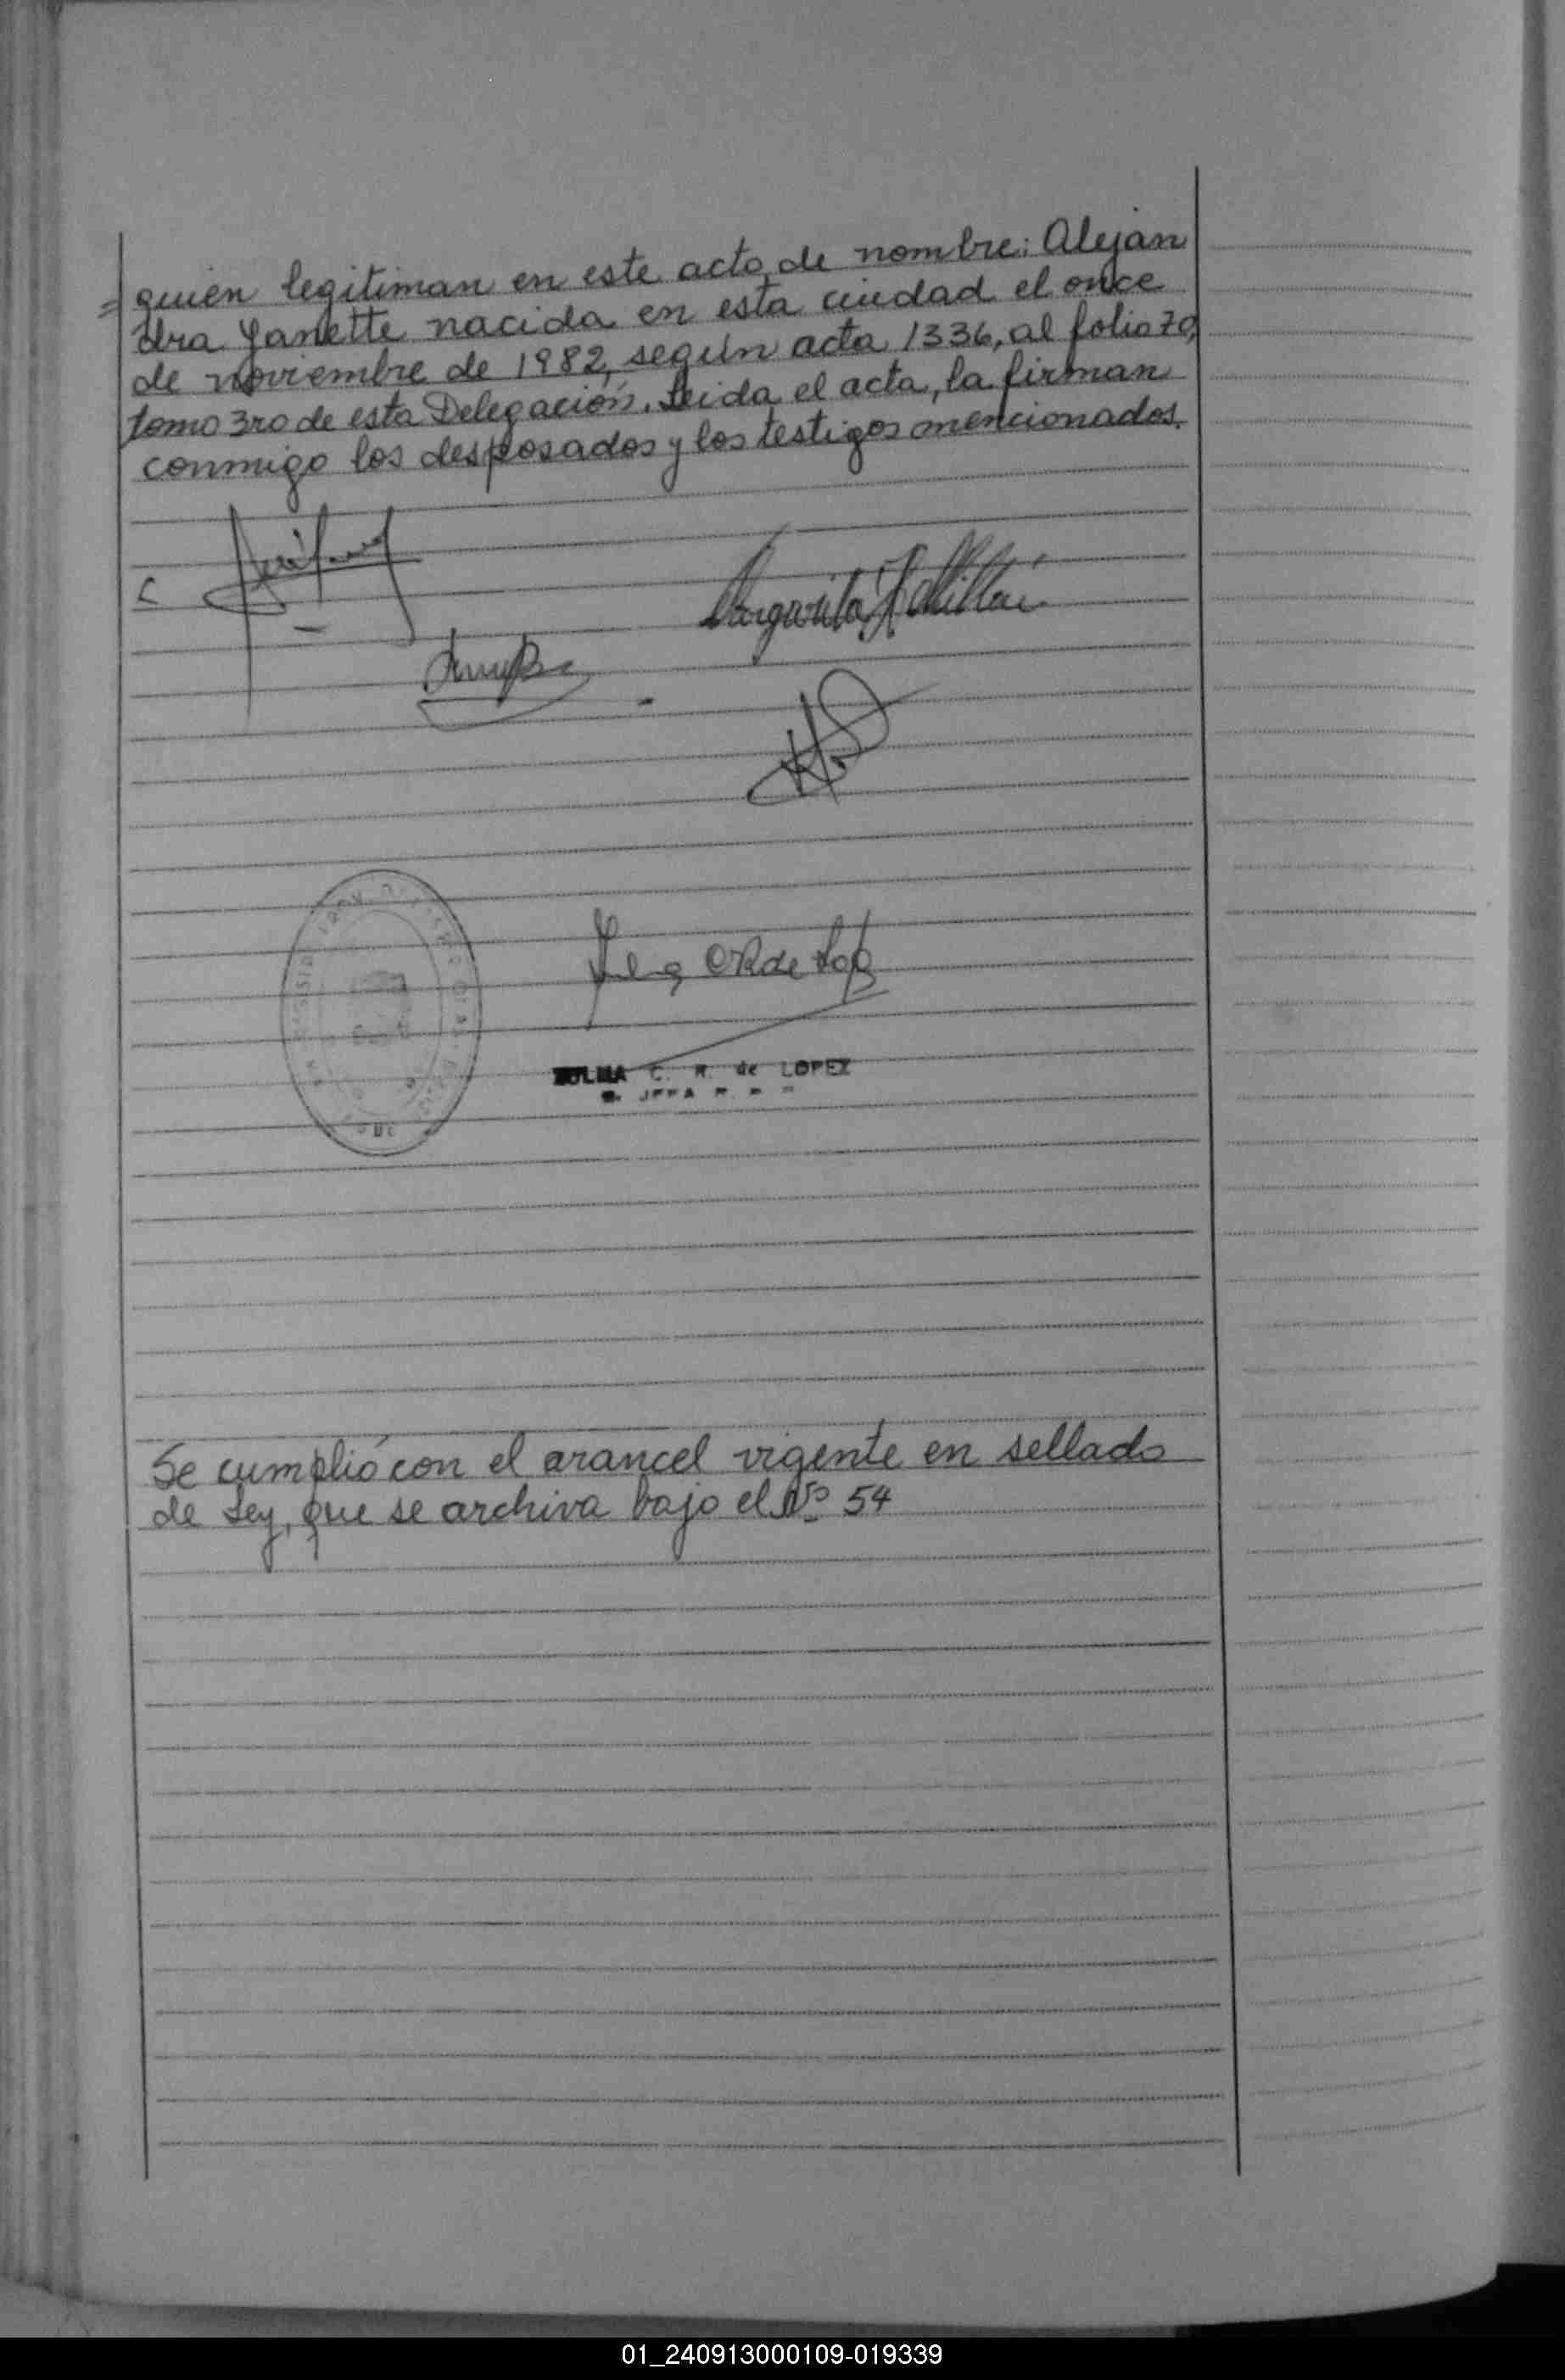 = quien legitiman en este acto, de nombre: Alejan
dra Yanette nacida en esta ciudad el once
de noviembre de 1982, según acta 1336, al folio 70,
tomo 3ro de esta Delegación. Leida el acta, la firman
conmigo los desposados y los testigos mencionados.
Margarita
ZULMA C. R. de LOPEZ
JEFA R.
Se cumplió con el arancel vigente en sellado
de Ley, que se archiva bajo el Nº 54
01_240913000109-019339